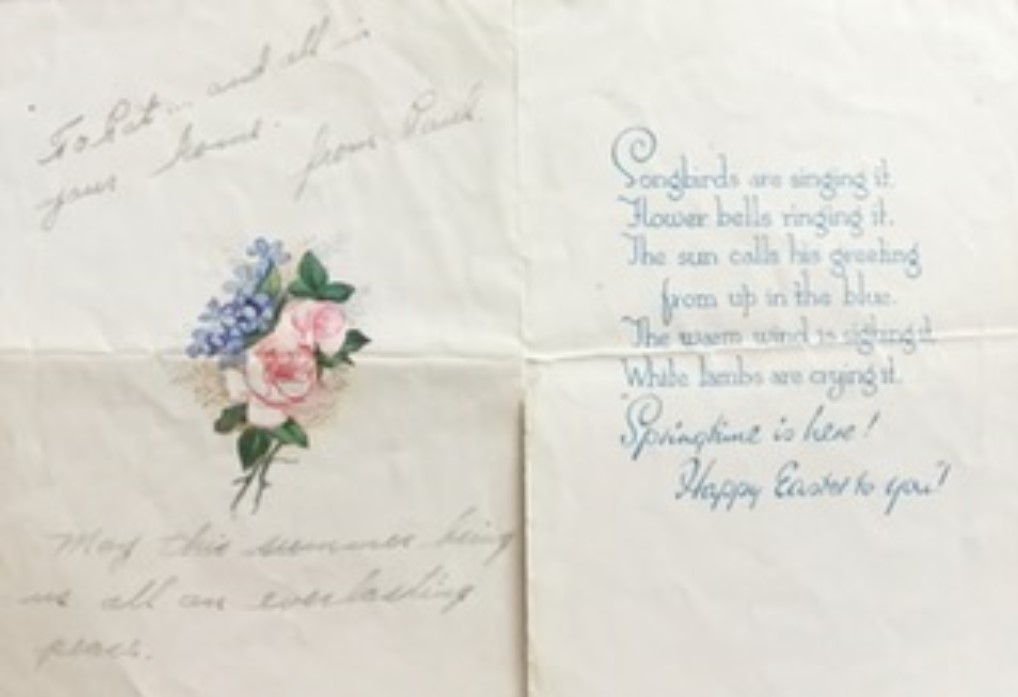 To Pat... and all in
your home.
from Paul.
May this summer bring
us all an everlasting
peace.
Songbirds are singing it.
Flower bells ringing it.
The sun calls his greeting
from up in the blue.
The warm wind is sighing it.
White lambs are crying it.
"Springtime is here!
Happy Easter to you"!